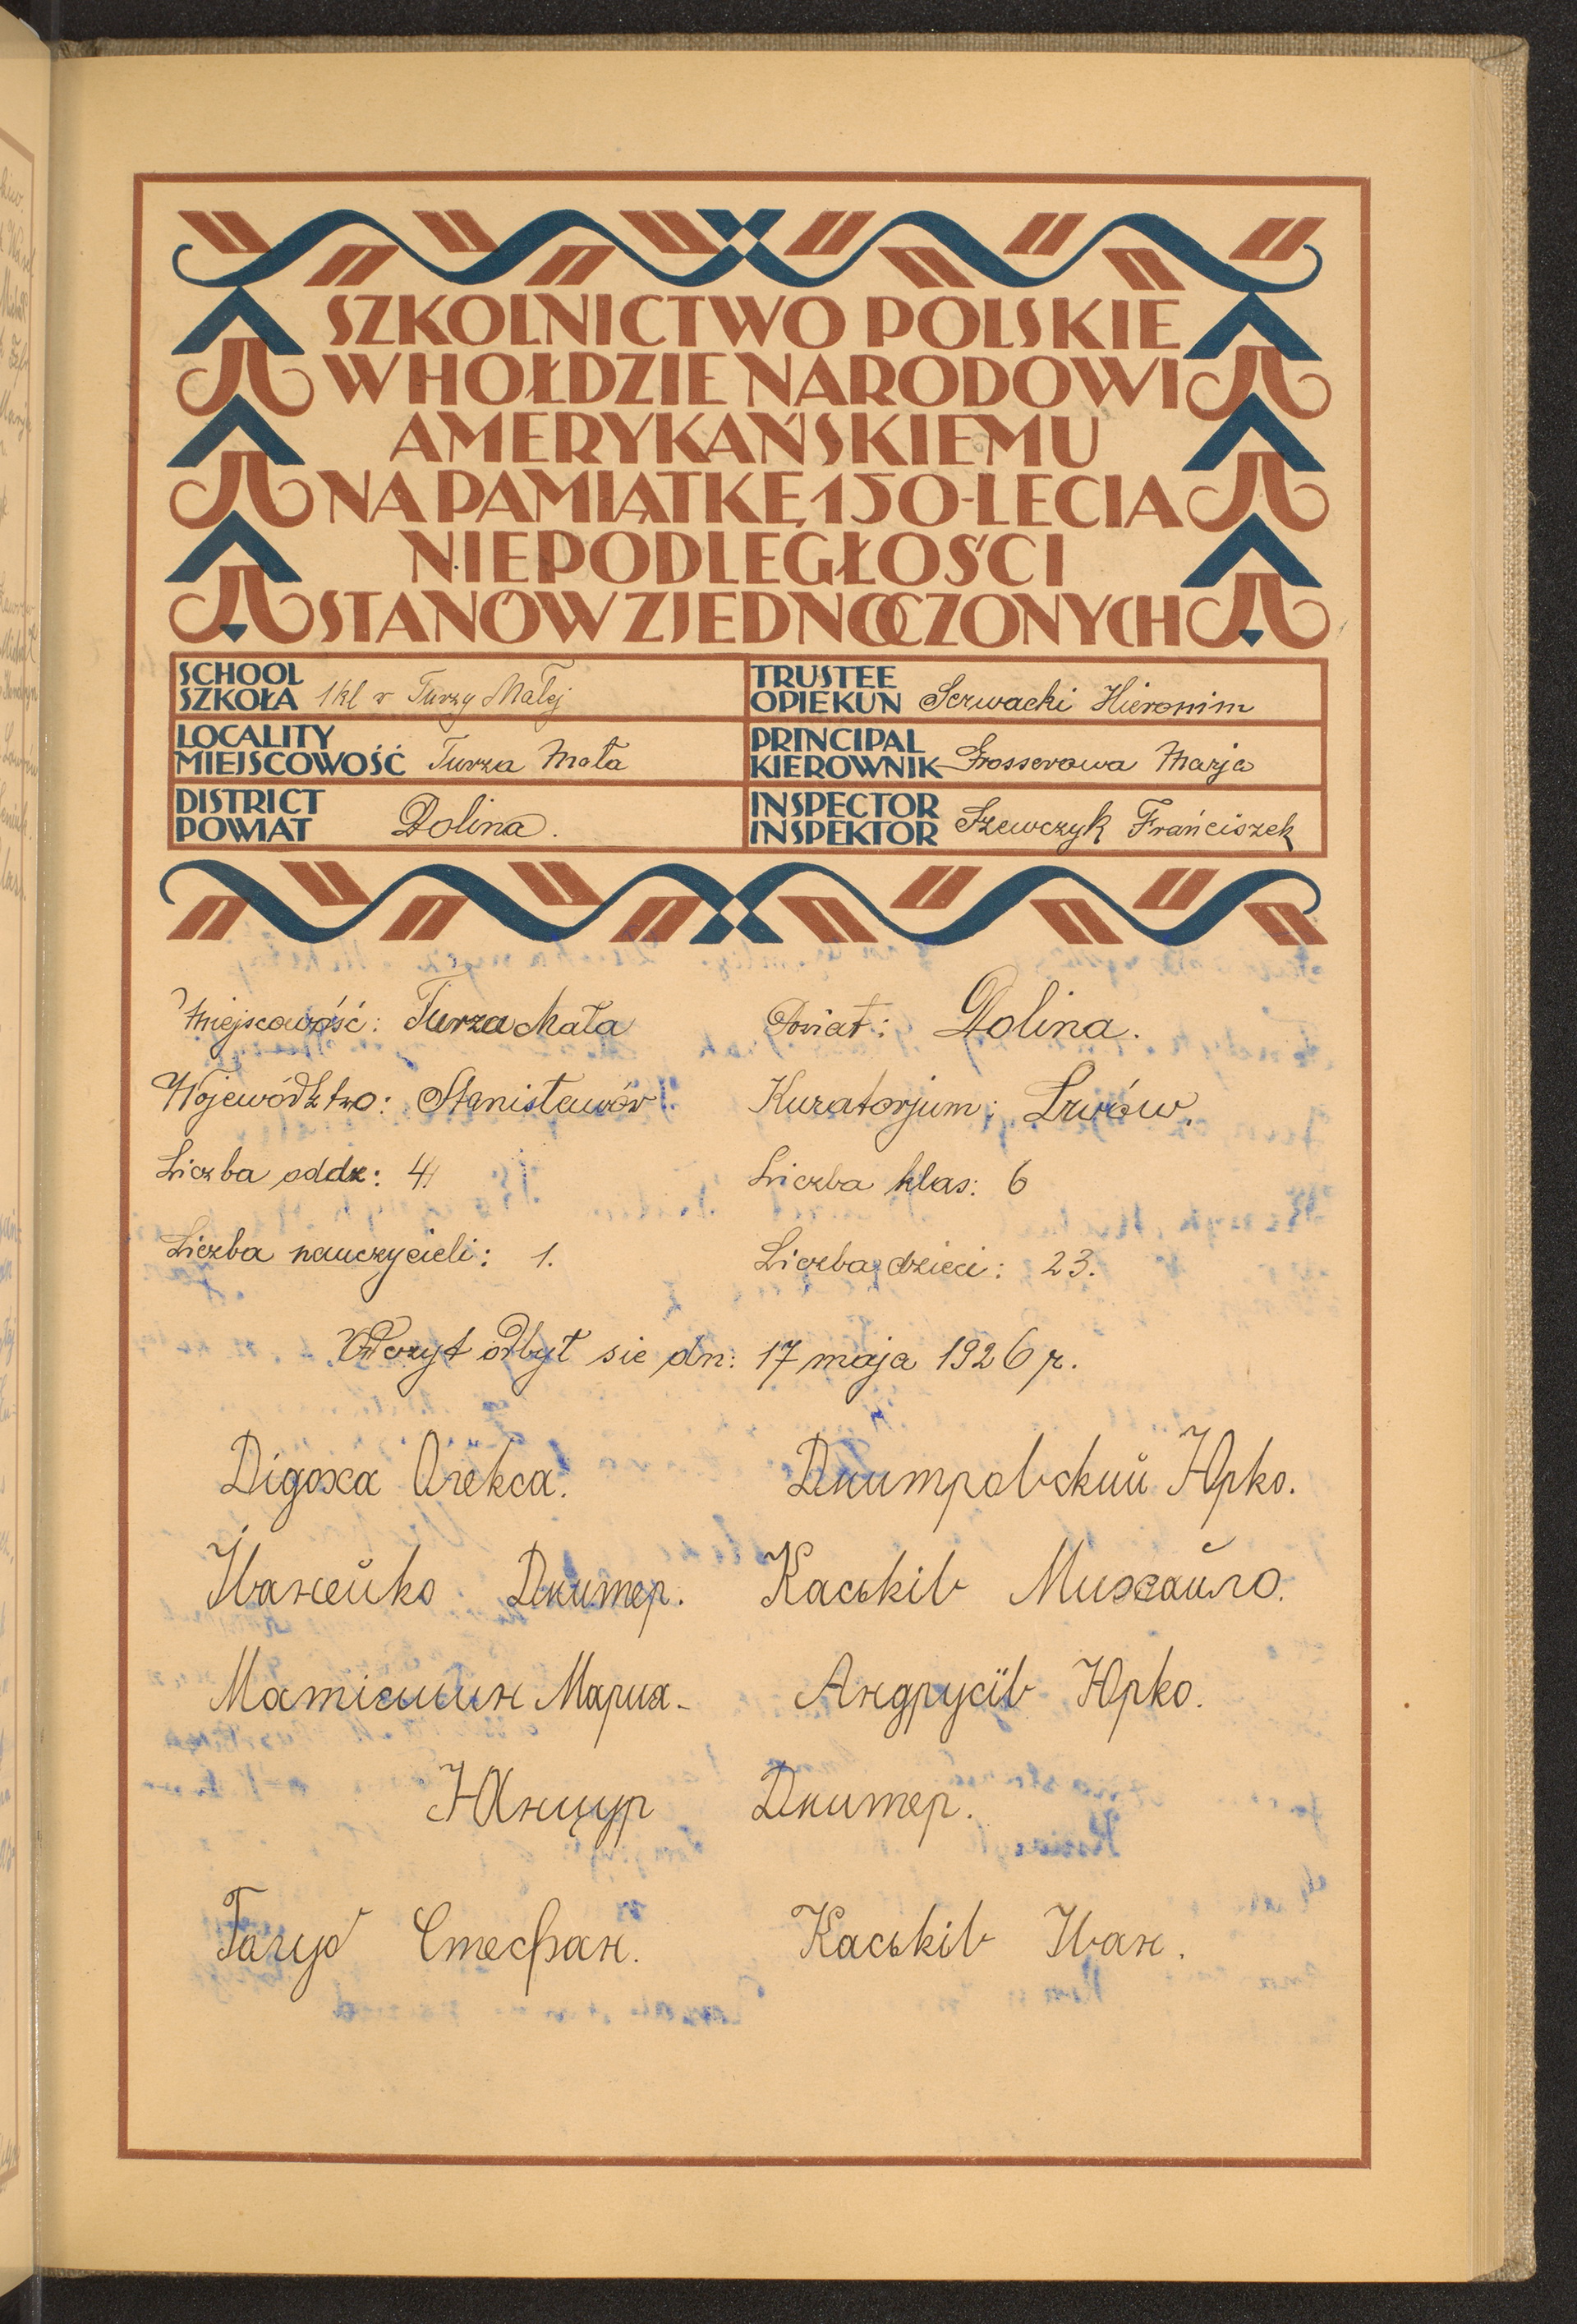 SZKOLNICTWO POLSKIE
W HOŁDZIE NARODOWI
AMERYKAŃSKIEMU
NA PAMIĄTKĘ 150-LECIA
NIEPODLEGŁOŚCI
STANÓW ZJEDNOCZONYCH
SCHOOL
SZKOŁA 1 kl w Turzy Małej
TRUSTEE
OPIEKUN Serwacki Hieronim
LOCALITY
MIEJSCOWOŚĆ Turza Mała
PRINCIPAL
KIEROWNIK Grosserowa Marja
DISTRICT
POWIAT Dolina.
INSPECTOR
INSPEKTOR Szewczyk Frańciszek
Miejscowość: Turza Mała Powiat: Dolina.
Województwo: Stanisławów. Kuratorjum: Lwów.
Liczba oddz: 4 Liczba klas: 6
Liczba nauczycieli: 1. Liczba dzieci: 23.
Odczyt odbył sie dn: 17 maja 1926 r.
Дідоха Олекса. Дмитровский Юрко.
Иванейко Дмитер. Каськів Михайло.
Матіишин Мария. Андрусїв Юрко.
Дмитер.
Стефан. Каськів Иван.